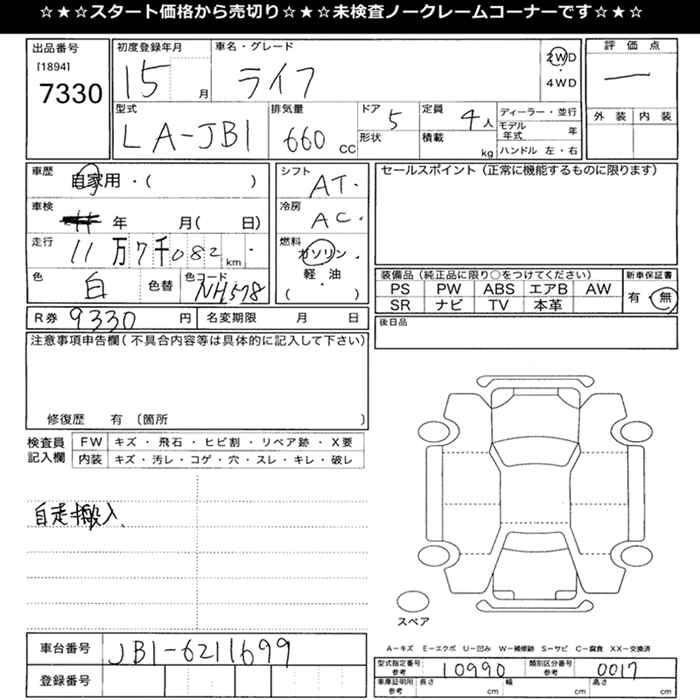 ☆★☆スタート価格から売切り☆★☆未検査ノークレームコーナーです☆★☆
出品番号
[1894]
7330
初度登録年月
15
月
車名・グレード
ライフ
2WD
・
4WD
評価点
ー
外装 内装
型式
LA-JB1
排気量
660 CC
ドア 5
形状
定員 4人
積載 kg
ディーラー・並行
モデル年式 年
ハンドル 左・右
車歴
自家用・( )
車検
年 月( 日)
走行
11万7千082km
色
白
色替
色コード
NH578
シフト
AT.
冷房
AC.
燃料
ガソリン
軽・油
( )
セールスポイント(正常に機能するものに限ります)
装備品(純正品に限り○をつけてください)
PS PW ABS エアB AW
SR ナビ TV 本革
新車保証書
有・無
後日品
R券 9330 円
名変期限 月 日
注意事項申告欄(不具合内容等は具体的に記入して下さい)
修復歴 有 〔箇所 〕
検査員
記入欄
FW キズ・飛石・ヒビ割・リペア跡・X要
内装 キズ・汚レ・コゲ・穴・スレ・キレ・破レ
自走搬入
スペア
A-キズ E-エクボ U-凹み W-補修跡 S-サビ C-腐食 XX-交換済
車台番号 JB1-6211699
登録番号
型式指定番号
参考
10990
類別区分番号
参考
0017
車庫証明用
参考
長さ cm 幅 cm 高さ cm